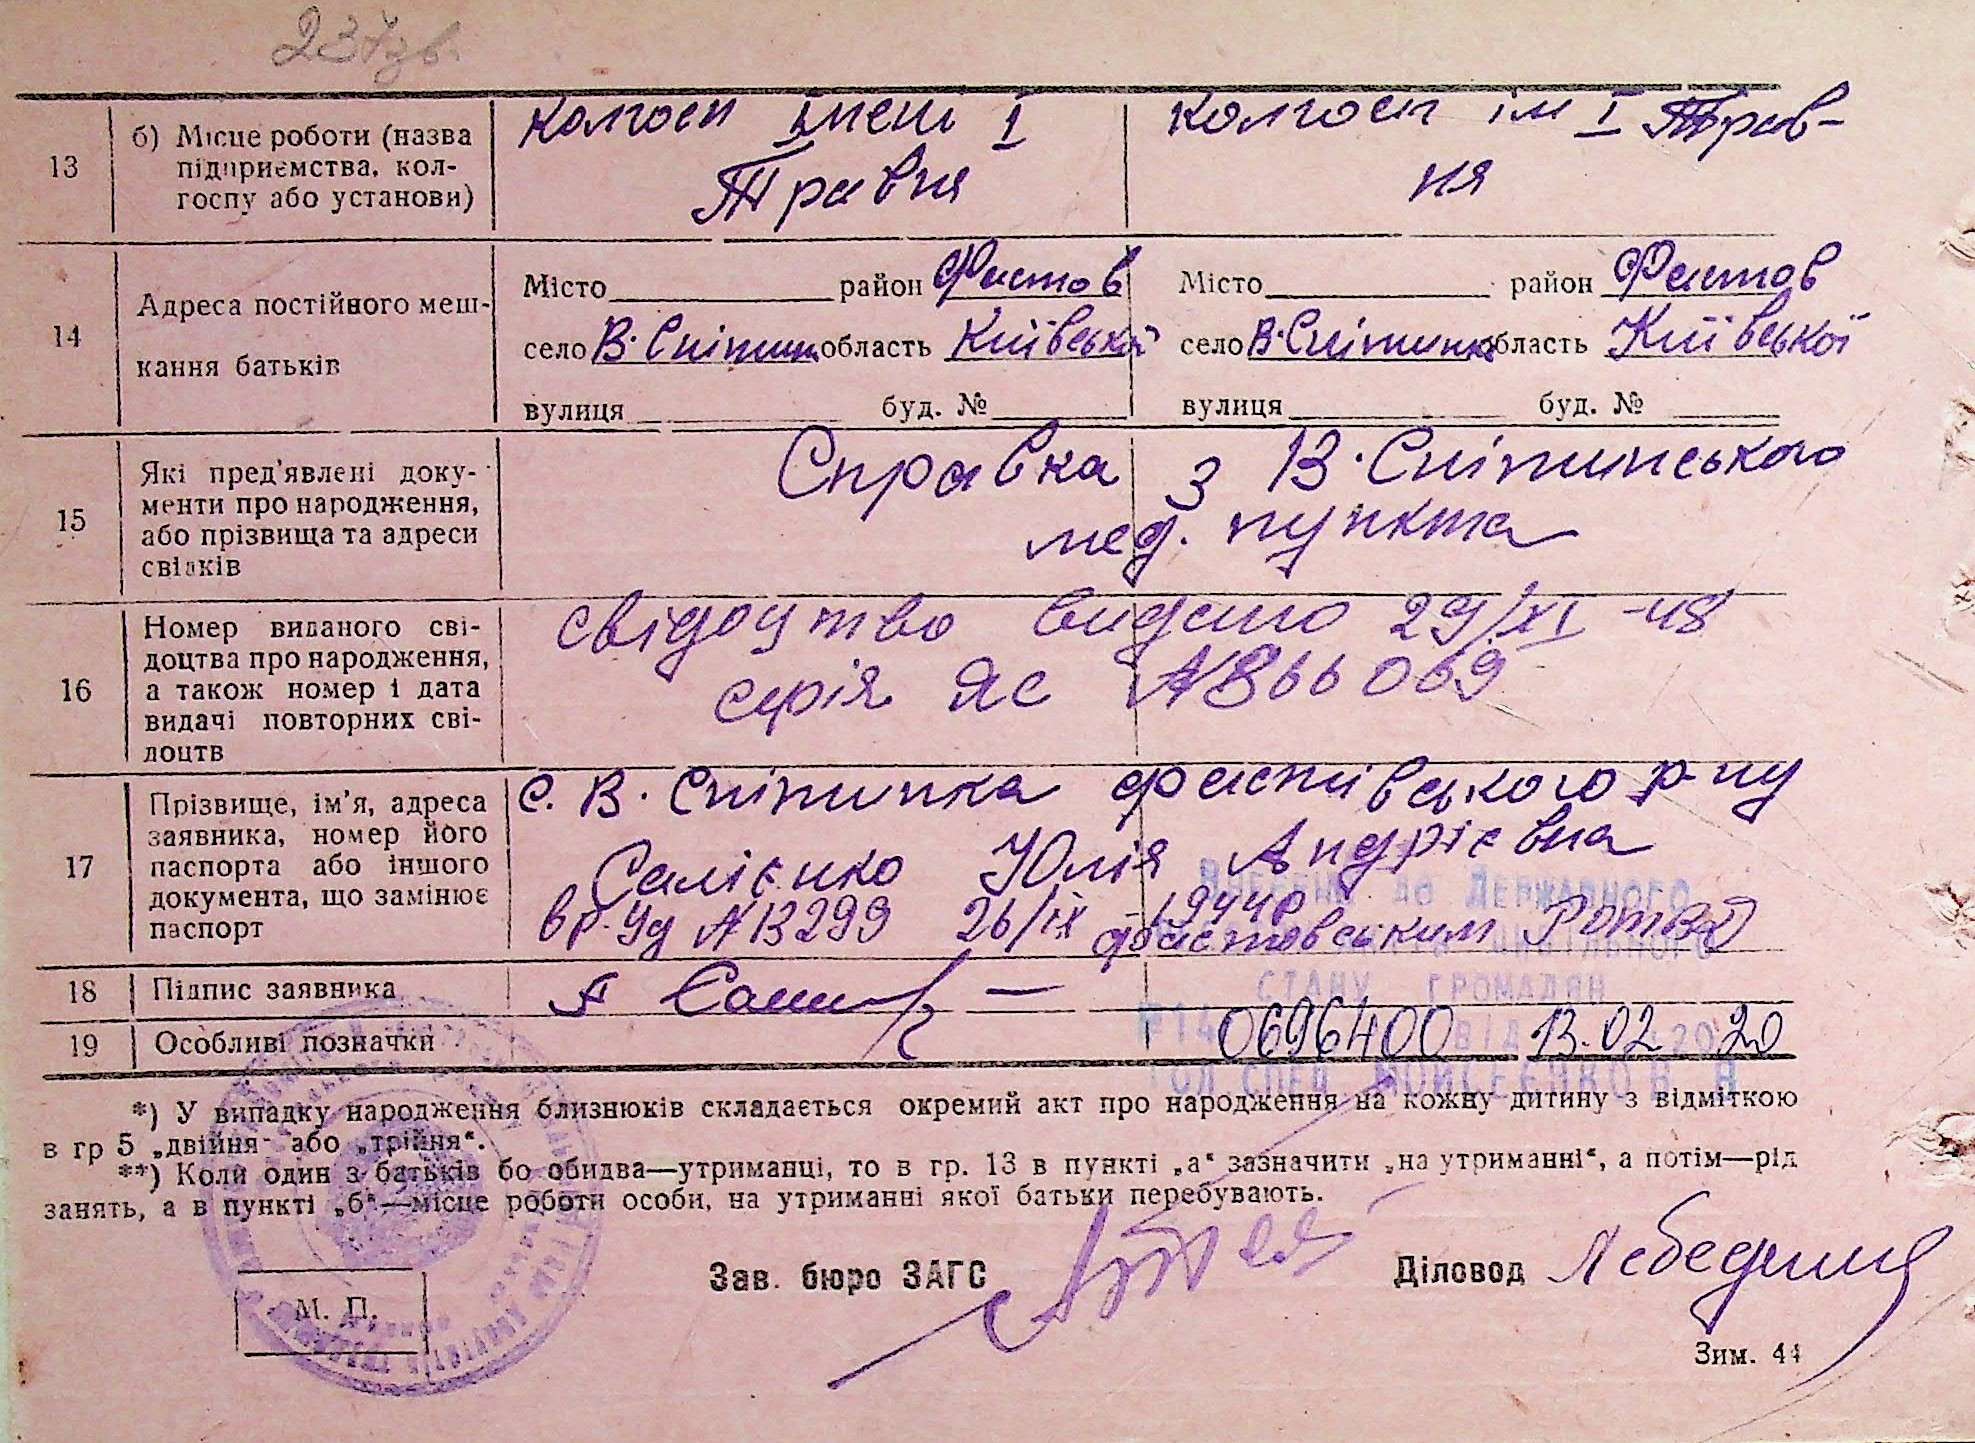 237зв.
13
б) Місце роботи (назва
підприємства, кол-
госпу або установи)
колгосп імені І
Травня
колгосп ім І Трав-
ня
14
Адреса постійного меш-
кання батьків
Місто район Фастов
село В. Снітинка область Київської
вулиця буд. №
Місто район Фастов
село В. Снітинка область Київської
вулиця буд. №
15
Які пред'явлені доку-
менти про народження,
або прізвища та адреси
свідків
Справка з В. Снітинського
мед. пункта
16
Номер виданого сві-
доцтва про народження,
а також номер і дата
видачі повторних сві-
доцтв
свідоцтво видано 29/XI -48
серія ЯС №866069
17
Прізвище, ім'я, адреса
заявника, номер його
паспорта або іншого
документа, що замінює
паспорт
с. В. Снітинка Фастівського р-ну
Салієнко Юлія Андрієвна
вр. уд №13299 26/ІХ - 1944р
Фастовським
18
Підпис заявника
19
Особливі позначки
Внесено до Державного
стану громадян
0696400 від 13.02 2020
Гол. спец. Мойсеєнко В.
*) У випадку народження близнюків складається окремий акт про народження на кожну дитину з відміткою
в гр 5 „двійня" або „трійня".
**) Коли один з батьків бо обидва—утриманці, то в гр. 13 в пункті „а" зазначити „на утриманні", а потім—рід
занять, а в пункті „б"—місце роботи особи, на утриманні якої батьки перебувають.
Зав. бюро ЗАГС
Діловод
М. П.
Зим. 44